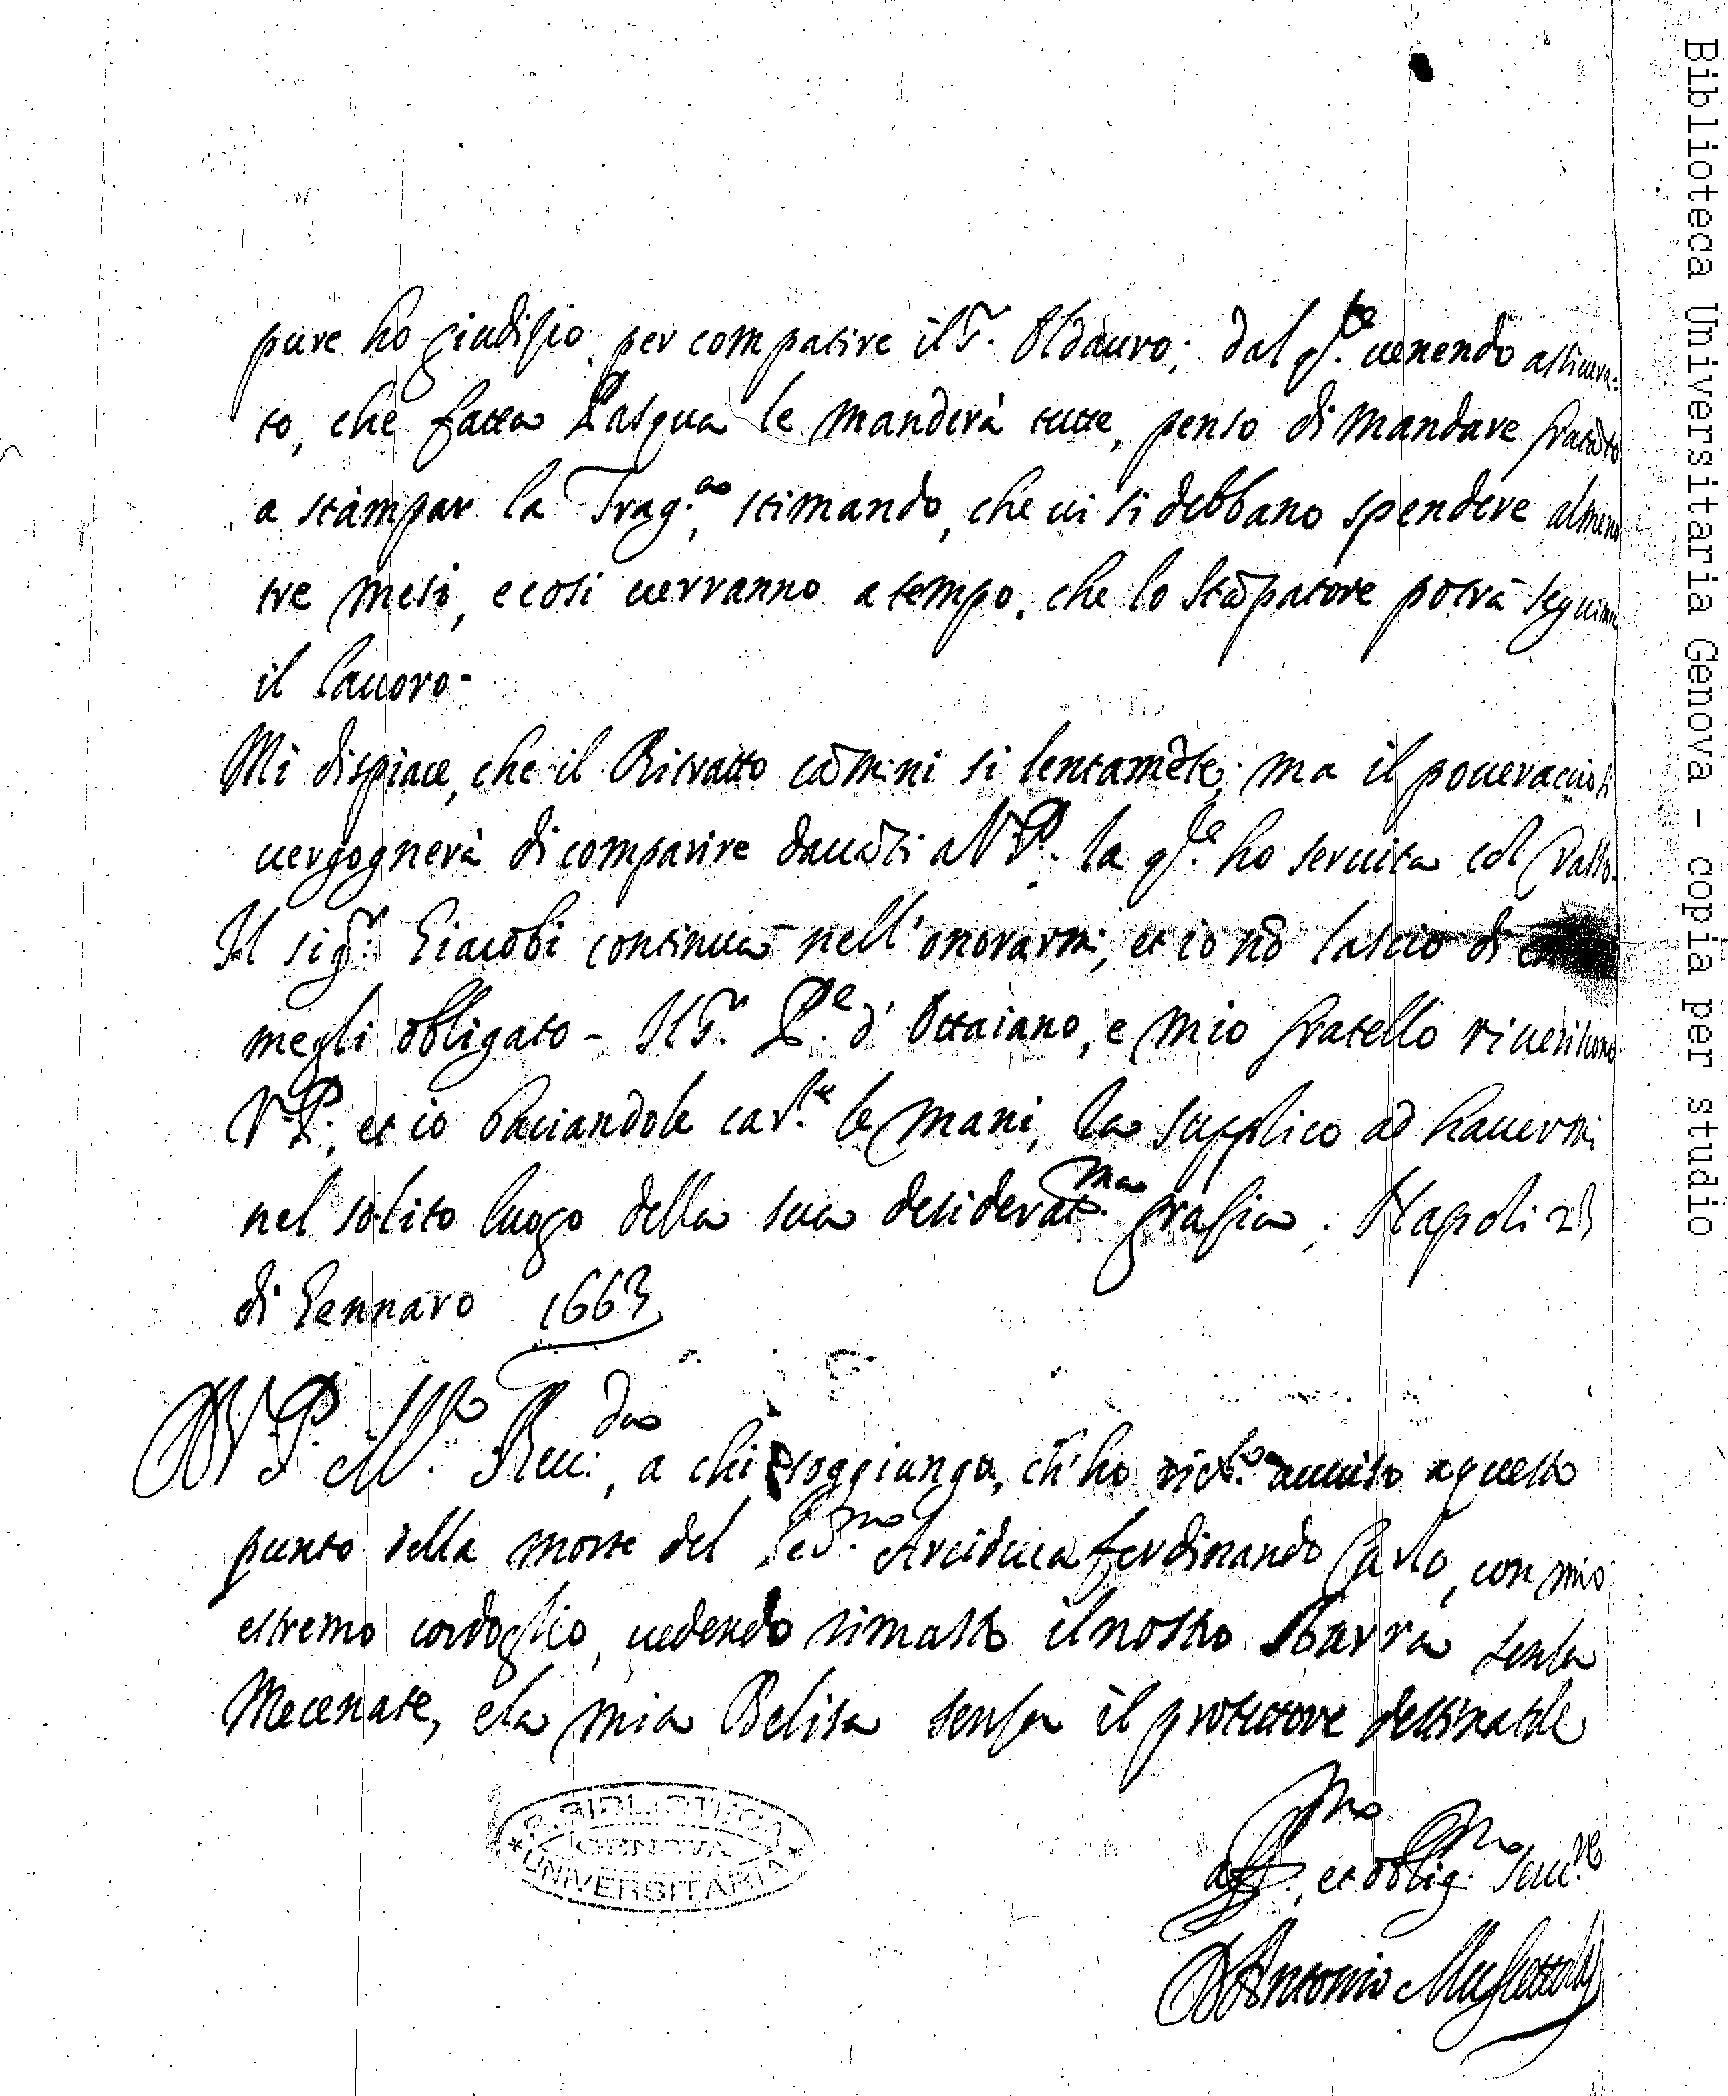 pure ho giudizio per compatire il S.r Aldauro; dal q.le venendo assicura-
to, che fatta Pasqua le manderà tutte, penso di mandare frattãto
a stampar la Trag.a, stimando, che vi si debbano spendere almeno
tre mesi, e così verranno a tempo, che lo stãpatore potrà seguire
il lavoro.
Mi dispiace, che il Ritratto cãmini sì lentamẽte; ma il poveraccio si
vergognerà di comparire davãti a V.P. la q.le ho servita col
Il sig.r Giacobi continua nell'onorarmi, et io nõ lascio di
megli obligato - Il S.r P.e d'Ottaiano, e mio fratello riveriscono
V.P., et io baciandole car.te le mani, la supplico ad havermi
nel solito luogo della sua desiderat.ma grazia. Napoli 23
di Gennaro 1663
D V.P. M.to Rev.da, a chi soggiungo, ch'ho ric.to avviso a questo
punto della morte del Ser.mo Arciduca Ferdinando Carlo, con mio
estremo cordoglio, vedendo rimasto il nostro Sbarra senza
Mecenate, e la mia Belisa senza il protettore destinatole
Aff.mo, et oblig.mo Ser.re
D Antonio Muscettola
R. BIBLIOTECA
GENOVA
* UNIVERSITARIA *
Biblioteca Universitaria Genova - copia per studio